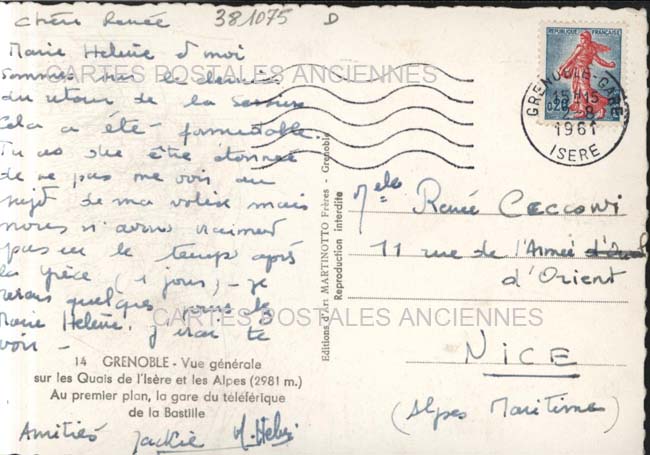 Chère Renée 381075 D
Marie Helene et moi
sommes sur le
du retour de la
Cela a été formidable.
Tu as du être étonnée
de ne pas me voir au
sujet de ma valise mais
nous n'avons vraiment
pas eu le temps après
la Grèce (1 jour) - je
serais quelques jours chez
Marie Helene, j'irai te
voir -
14 GRENOBLE - Vue générale
sur les Quais de l'Isère et les Alpes (2981 m.)
Au premier plan, la gare du téléférique
de la Bastille
Amitiés Jackie M. Helene
CARTES POSTALES ANCIENNES
CARTES POSTALES ANCIENNES
Editions d'Art MARTINOTTO Frères - Grenoble
Reproduction interdite
REPUBLIQUE FRANÇAISE
0,20
GRENOBLE-GARE
15H15
2-8
1961
ISERE
Melle Renée CECCONI
11 rue de l'Armée
d'Orient
NICE
(Alpes Maritimes)